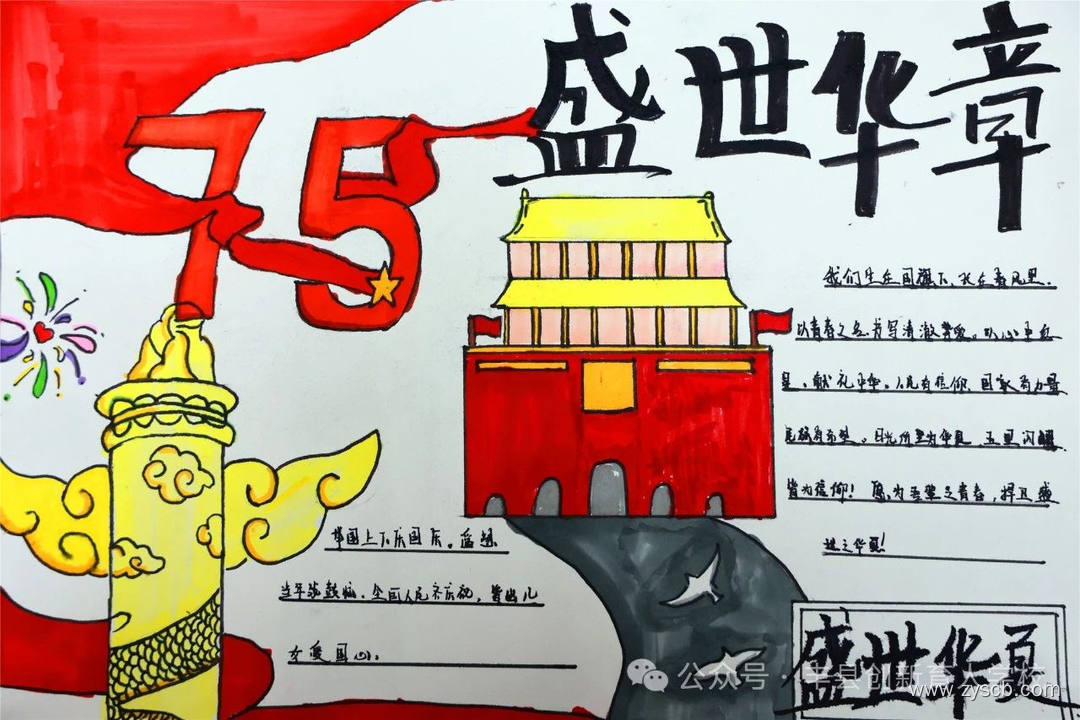 盛世华章
75
我们生在国旗下，长在春风里。
以青春之名书写清澈挚爱。以心中血
星，献礼中华。人民有信仰，国家有力量
民族有希望。目光所至为华夏，五星闪耀
皆为信仰！愿以吾辈之青春，捍卫盛
世之华夏！
举国上下庆国庆。遥想
当年号鼓擂。全国人民齐庆祝，皆出儿
女爱国心。
盛世华夏
公众号·丰县创新育人学校
www.zyscb.com